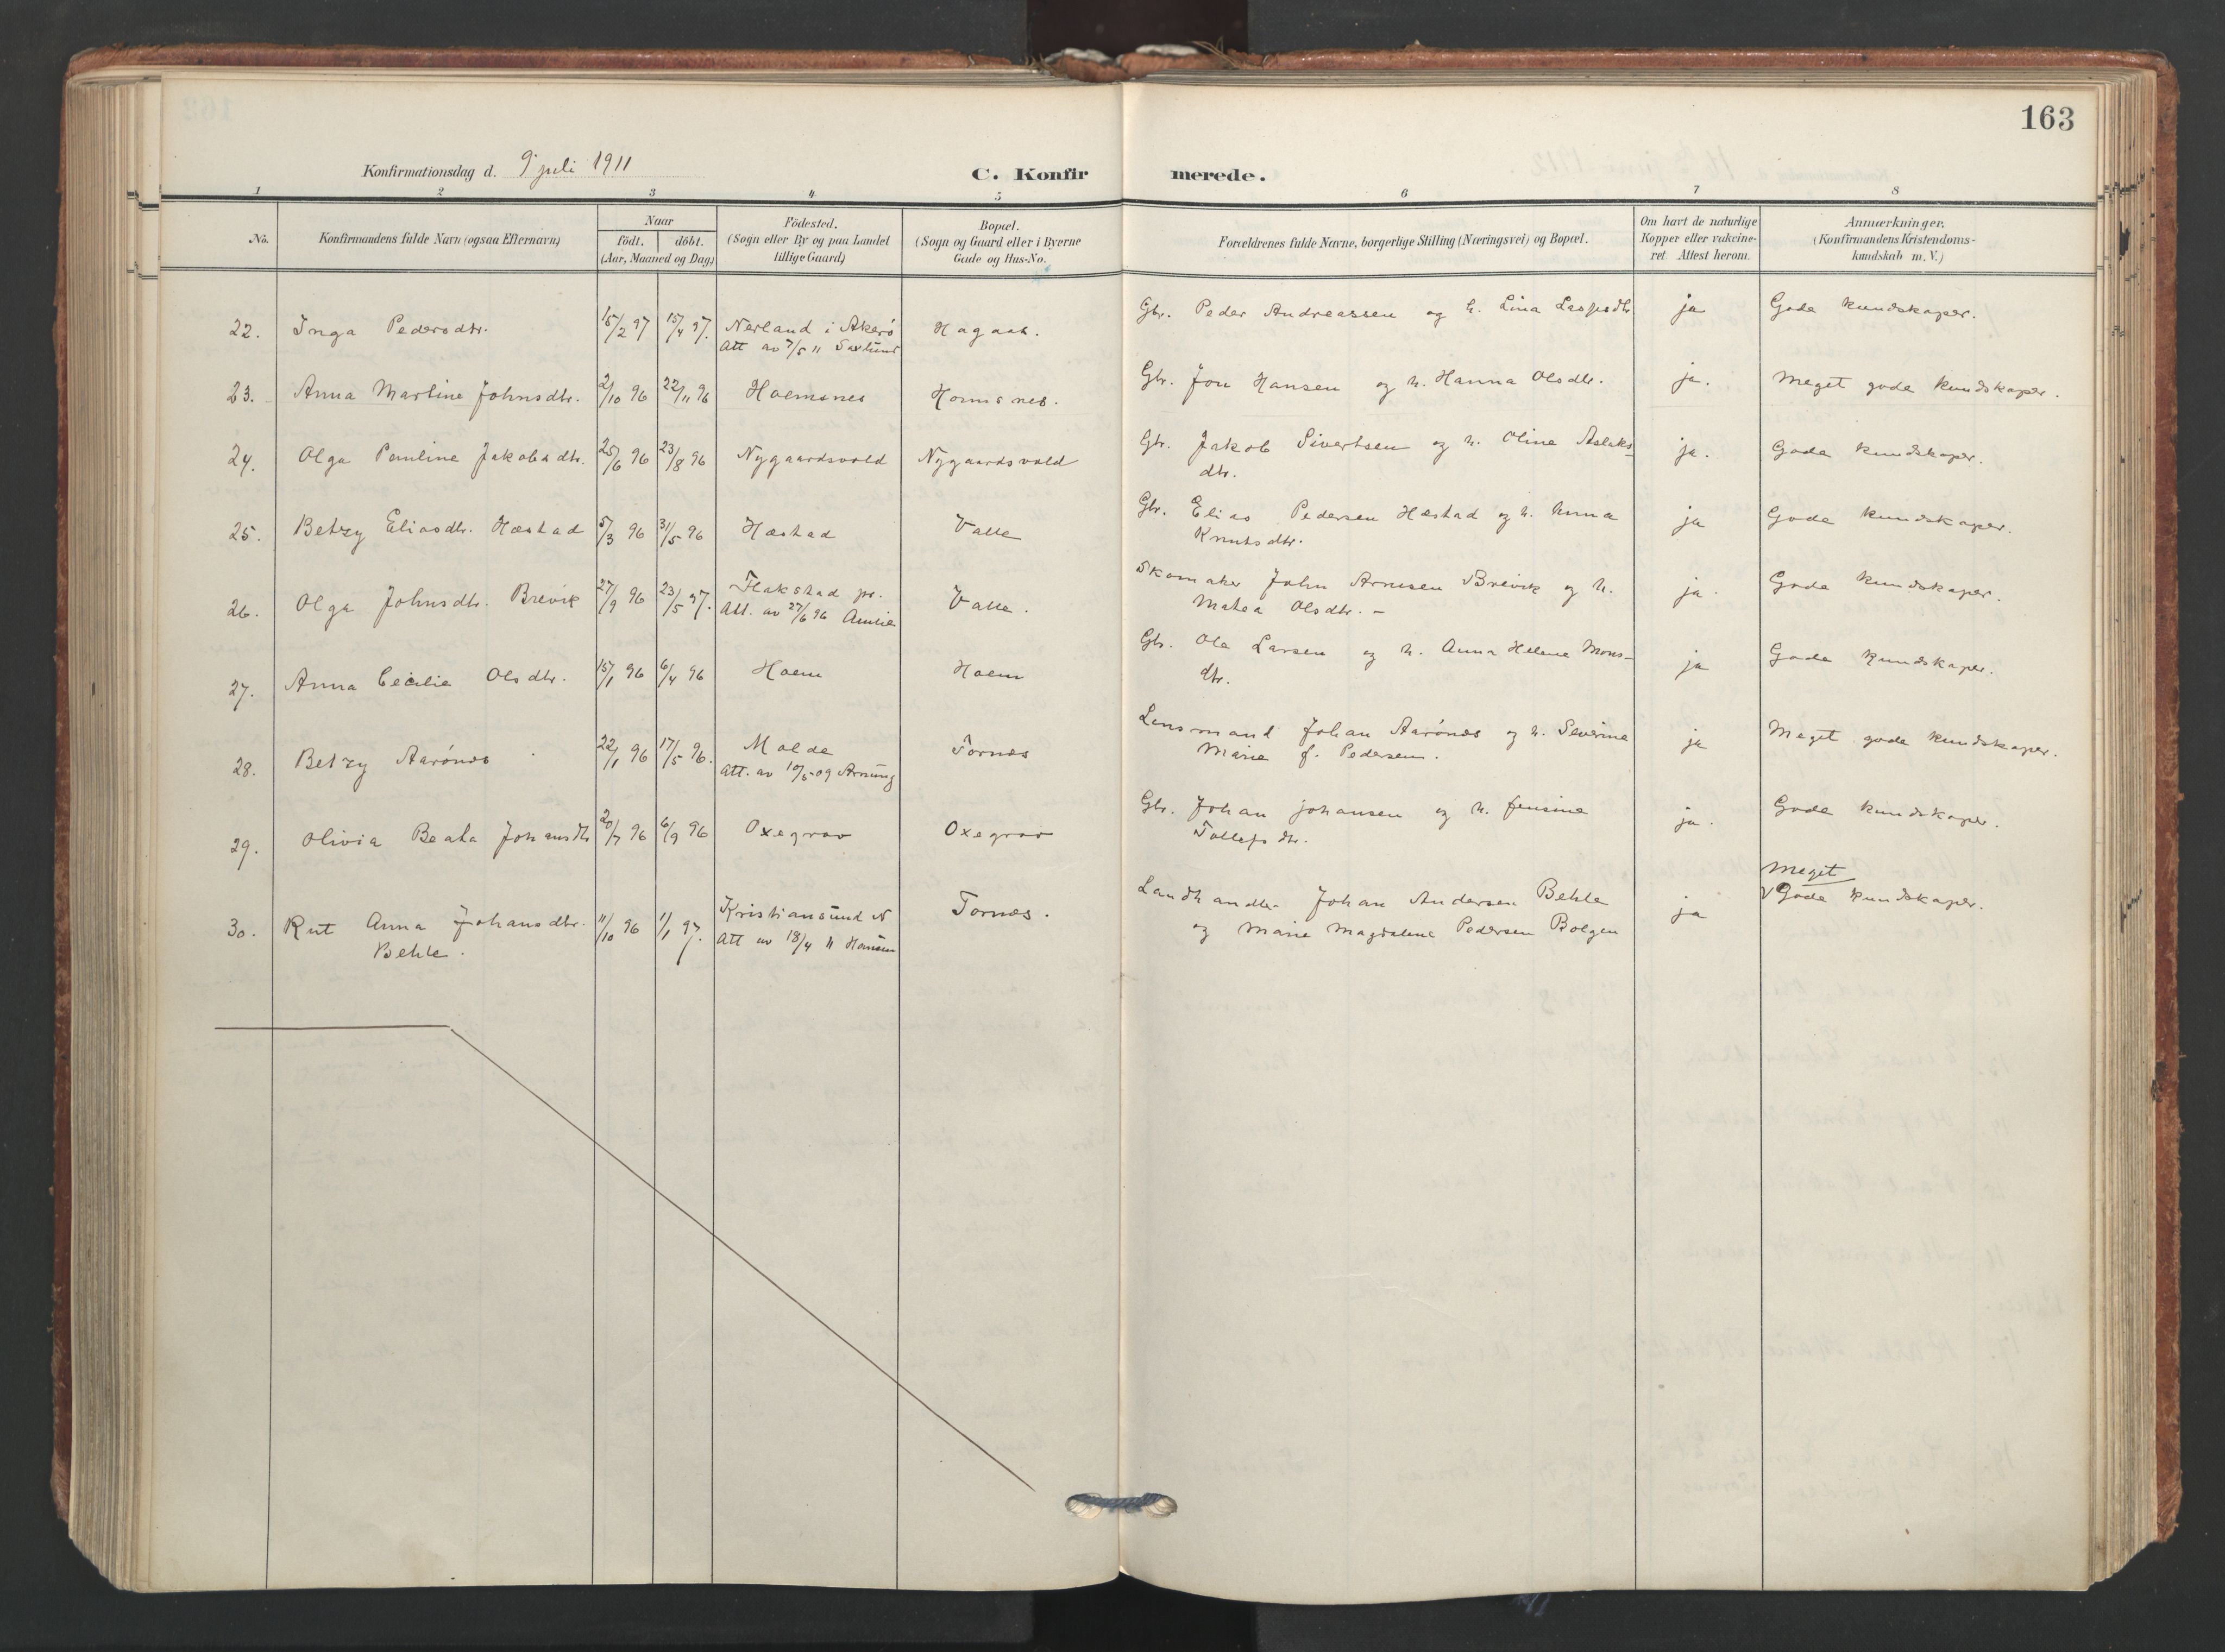 163
Konfirmationsdag d. 9 juli 1911
C. Konfirmerede.
1 2 3 4 5 6 7 8
No. Konfirmandens fulde Navn (ogsaa Efternavn) Naar født. døbt. (Aar, Maaned og Dag) Födested. (Sogn eller By og paa Landet tillige Gaard) Bopæl. (Sogn og Gaard eller i Byerne Gade og Hus-No. Forældrenes fulde Navne, borgerlige Stilling (Næringsvei) og Bopæl. Om havt de naturlige Kopper eller vakcineret. Attest herom. Anmærkninger. (Konfirmandens Kristendomskundskab m. V.)
22. Inga Pedersdtr. 15/2 97 15/4 97. Nerland i Akerø Hagaas. Gbr. Peder Andreassen og h. Lina Lasjesdtr ja Gode kundskaper.
Att av 7/5 11
23. Anna Martine Johnsdtr. 2/10 96 22/11 96 Hoemsnes Homsnes. Gbr. Jon Hansen og h. Hanna Olsdtr. ja. Meget gode kundskaper.
24. Olga Pauline Jakobsdtr. 25/6 96 23/8 96 Nygaardsvold Nygaardsvold Gbr. Jakob Sivertsen og h. Oline Aslaks-
dtr. ja. Gode kundskaper.
25. Betzy Eliasdtr. Hæstad 5/3 96 31/5 96 Hæstad Valle Gbr. Elias Pedersen Hæstad og h. Anna
Knutsdtr. ja Gode kundskaper.
26. Olga Johnsdtr. Brevik 27/9 96 23/5 97. Flakstad pr. Valle. Skomaker John Arnesen Brevik og h.
Att. av 27/6 96 Matea Olsdtr. – ja. Gode kundskaper.
27. Anna Cecilie Olsdtr. 15/1 96 6/4 96 Hoem Hoem Gbr. Ole Larsen og h. Anna Helene Mons-
dtr. ja Gode kundskaper.
28. Betzy Aarönes 22/1 96 17/5 96. Molde Tornes Lensmand Johan Aarönes og h. Severine
Att. av 10/5 09 Marie f. Pedersen. ja Meget gode kundskaper.
29. Olivia Beata Johansdtr 20/7 96 6/9 96 Oxegrav Oxegrav Gbr. Johan Johansen og h. Jensine
Tollefsdtr. ja. Gode kundskaper.
Meget
30. Rut Anna Johansdtr. 11/10 96 1/1 97. Kristiansund N Tornes. Landhandler Johan Andersen Behle ja Gode kundskaper.
Behle. Att av 18/4 11 Hansen og Marie Magdalene Pedersen Bolgen